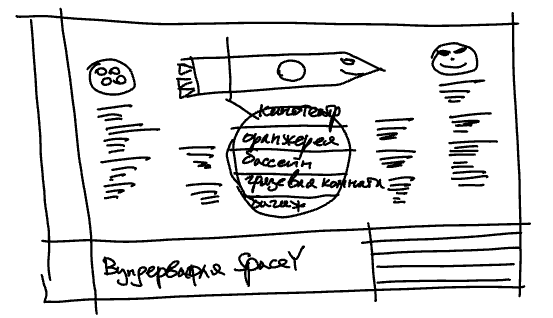 кинотеатр
оранжерея
бассейн
грузевая комната
багаж
Вундервафля SpaceY